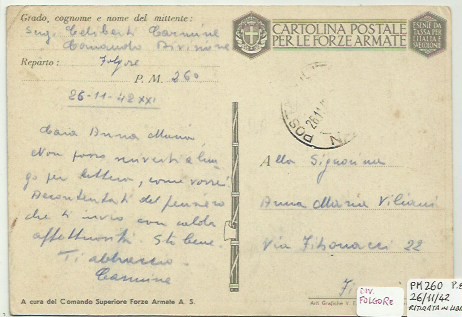 Grado, cognome e nome del mittente:
Serg. Celiberti Carmine
Comando Divisione
Reparto: Folgore
P. M. 260
26-11-42 XXI
Cara Anna Maria
Non posso scriverti a lun
go per lettera, come vorrei
Accontentati del pensiero
che ti invio con calda
affettuosità. Sta bene.
Ti abbraccio
Carmine
A cura del Comando Superiore Forze Armate A. S.
CARTOLINA POSTALE
PER LE FORZE ARMATE
ESENTE DA
TASSA PER
L'ITALIA E
SPEDIZIONE
POS
26.11
Alla Signorina
Anna Maria Viliani
Via Fibonacci 22
Arti Grafiche
DIV.
FOLGORE
PM 260
26/11/42
RITIRATA IN